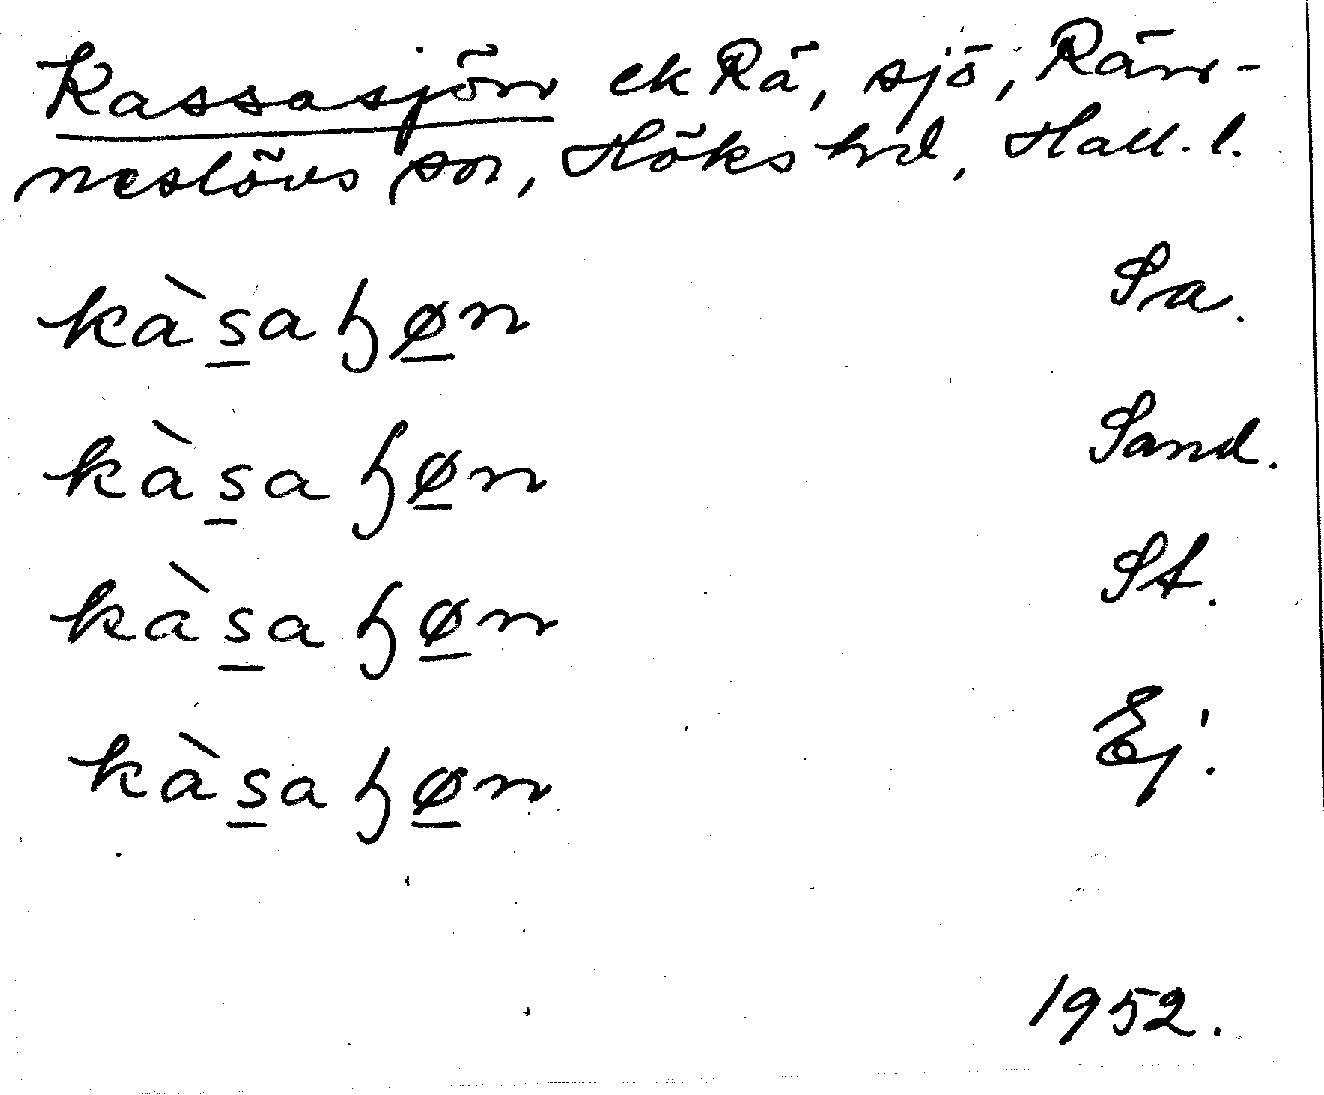 Kassasjön ek Rä, sjö, Rän-
neslövs sn, Höks hd, Hall. l.
kàs̲aɧø̲n Sa.
kàs̲aɧø̲n Sand.
kàs̲aɧø̲n St.
kàs̲aɧø̲n Ej.
1952.